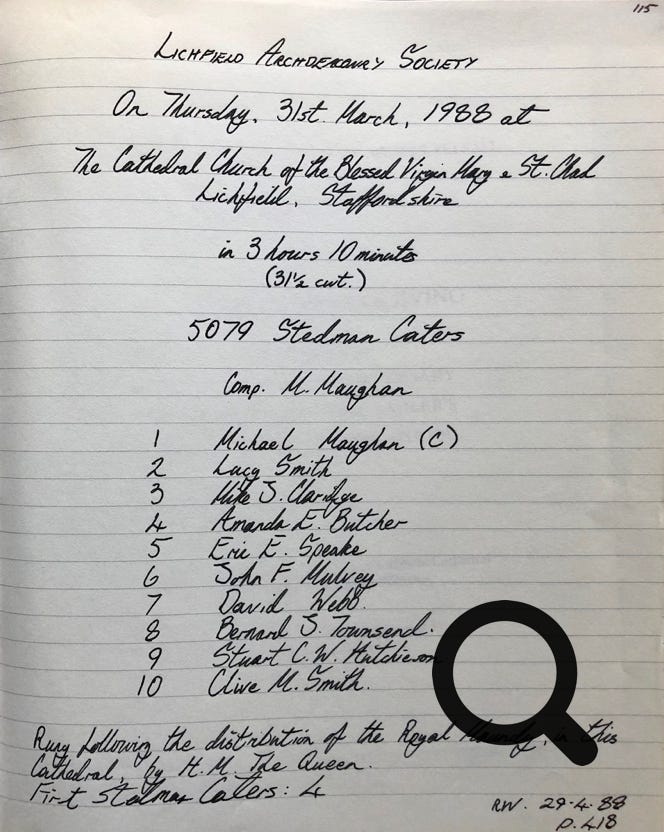 115
LICHFIELD ARCHDEACONRY SOCIETY
On Thursday, 31st. March, 1988 at
The Cathedral Church of the Blessed Virgin Mary & St. Chad
Lichfield, Staffordshire
in 3 hours 10 minutes
(31½ cwt.)
5079 Stedman Caters
Comp. M. Maughan
1 Michael Maughan (C)
2 Lucy Smith
3 Mike J. Claridge
4 Amanda E. Butcher
5 Eric E. Speake
6 John F. Mulvey
7 David Webb.
8 Bernard J. Townsend.
9 Stuart C. W. Hutchieson
10 Clive M. Smith.
Rung following the distribution of the Royal Maundy, in this
Cathedral, by H.M. The Queen.
First Stedman Caters: 4
RW. 29.4.88
P. 418